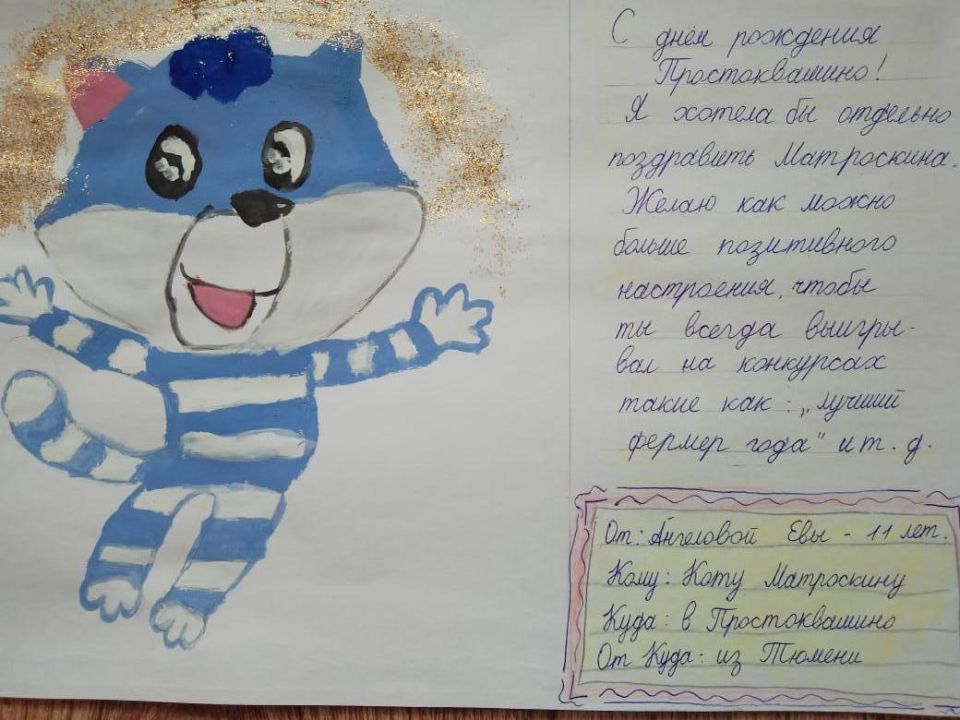 С днём рождения
Простоквашино!
Я хотела бы отдельно
поздравить Матроскина.
Желаю как можно
больше позитивного
настроения, чтобы
ты всегда выигры-
вал на конкурсах
такие как: „лучший
фермер года" и т. д.
От: Ангеловой Евы - 11 лет.
Кому: Коту Матроскину
Куда: в Простоквашино
От Куда: из Тюмени